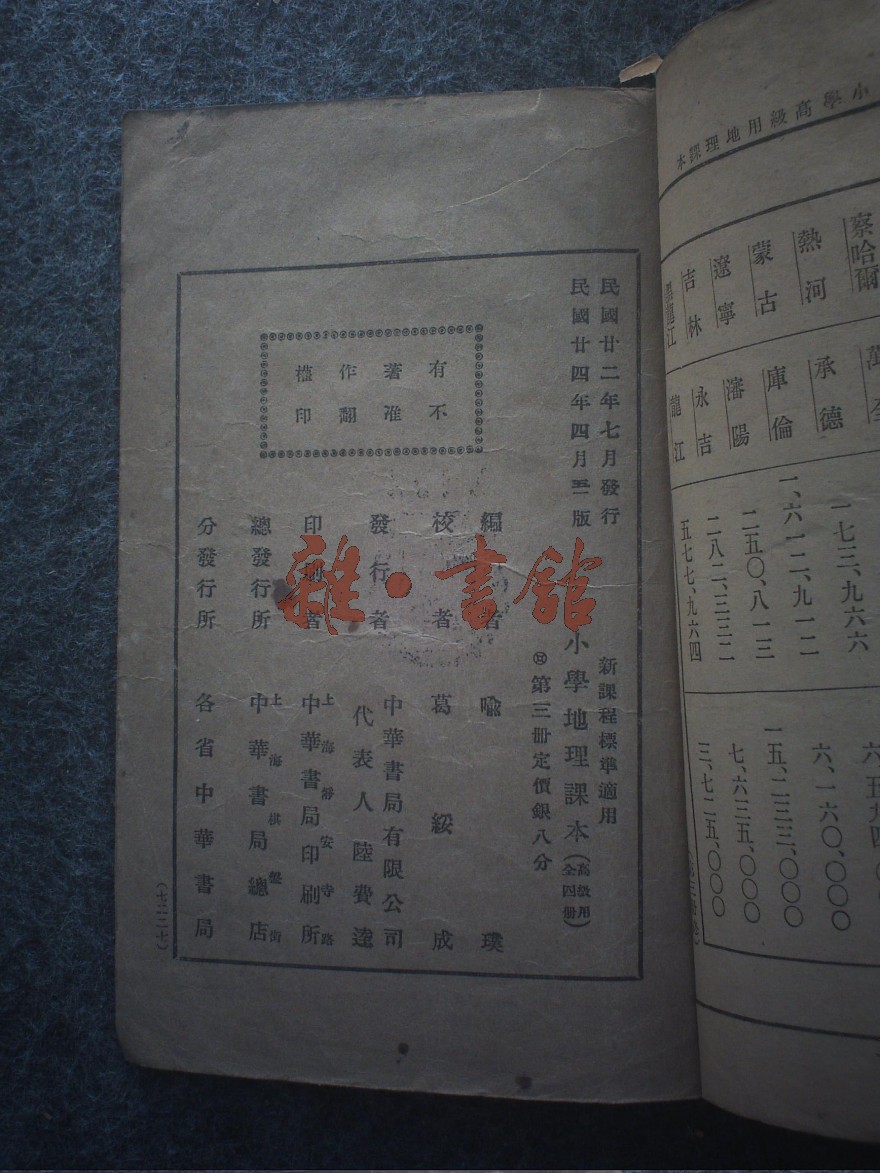 小學高級用地理課本
察哈爾
熱河
蒙古
遼寧
吉林
黑龍江
承德
庫倫
瀋陽
永吉
龍江
一七三、九六六
一、六一二、九一二
二五〇、八一三
二八二、三三二
五七七、九六四
六、一六〇、〇〇〇
一五、二三三、〇〇〇
七、六三五、〇〇〇
三、七二五、〇〇〇
民國廿二年七月發行
民國廿四年四月版
有不
著准
作翻
權印
新課程標準適用
小學地理課本(高級用全四冊)
第三冊定價銀八分
編者 喻璞
校者 葛綏成
發行者 中華書局有限公司
代表人 陸費逵
印刷者 上海靜安寺路
中華書局印刷所
總發行所 上海棋盤街
中華書局總店
分發行所 各省中華書局
(七二二七)
雜·書館